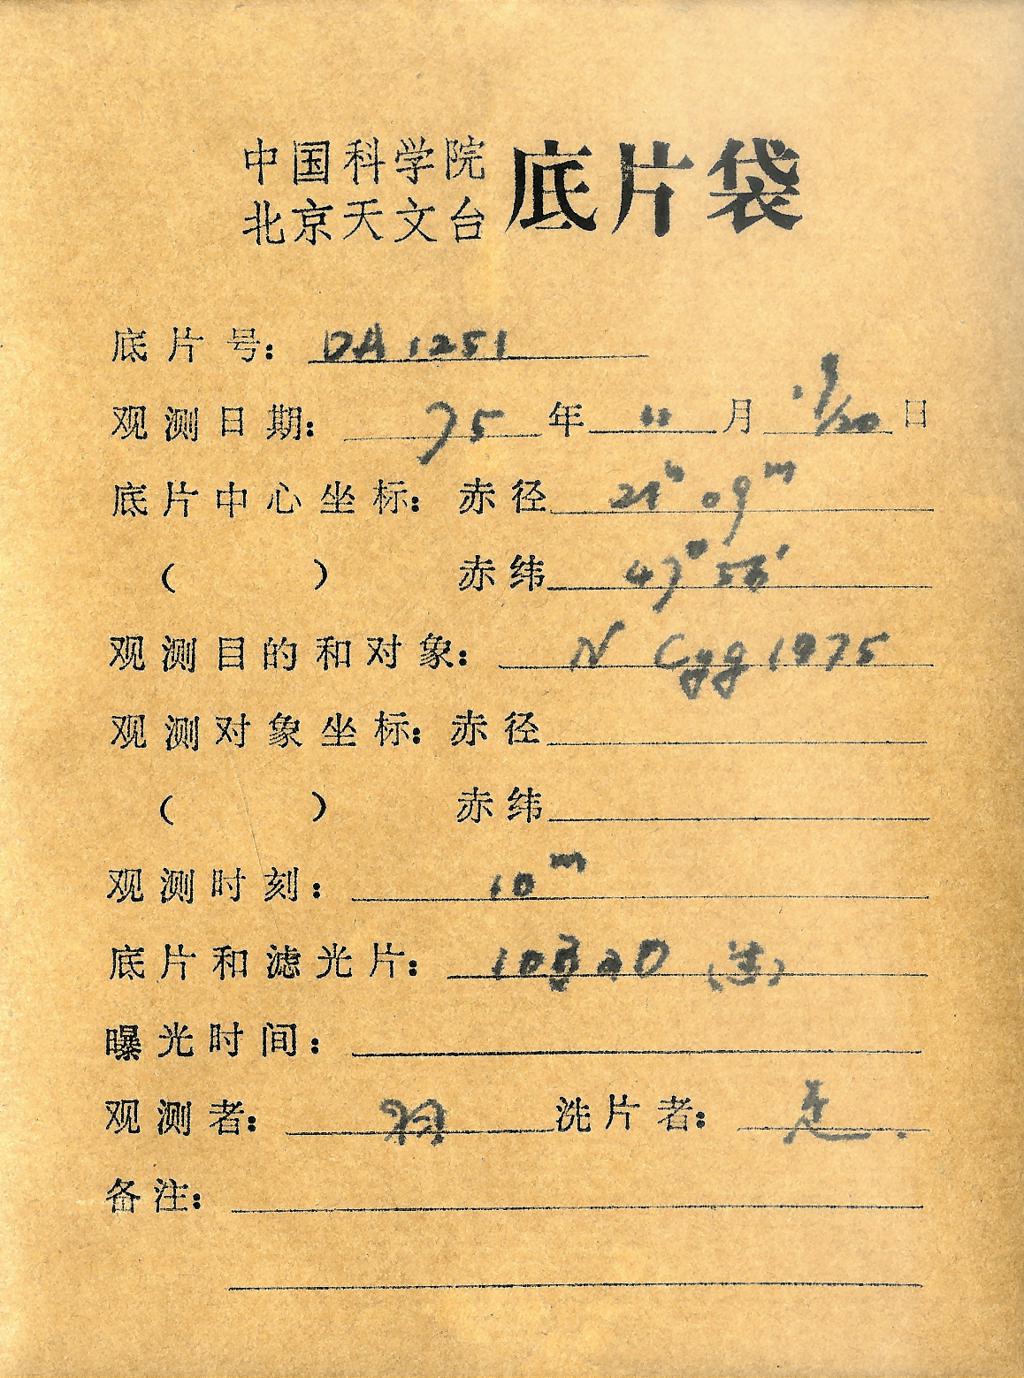 中国科学院
北京天文台 底片袋
底片号: DA 1251
观测日期: 75 年 11 月 19/20 日
底片中心坐标: 赤径 21h 09m
( ) 赤纬 47° 56′
观测目的和对象: N Cyg 1975
观测对象坐标: 赤径
( ) 赤纬
观测时刻: 10m
底片和滤光片:
曝光时间:
观测者: 洗片者:
备注: